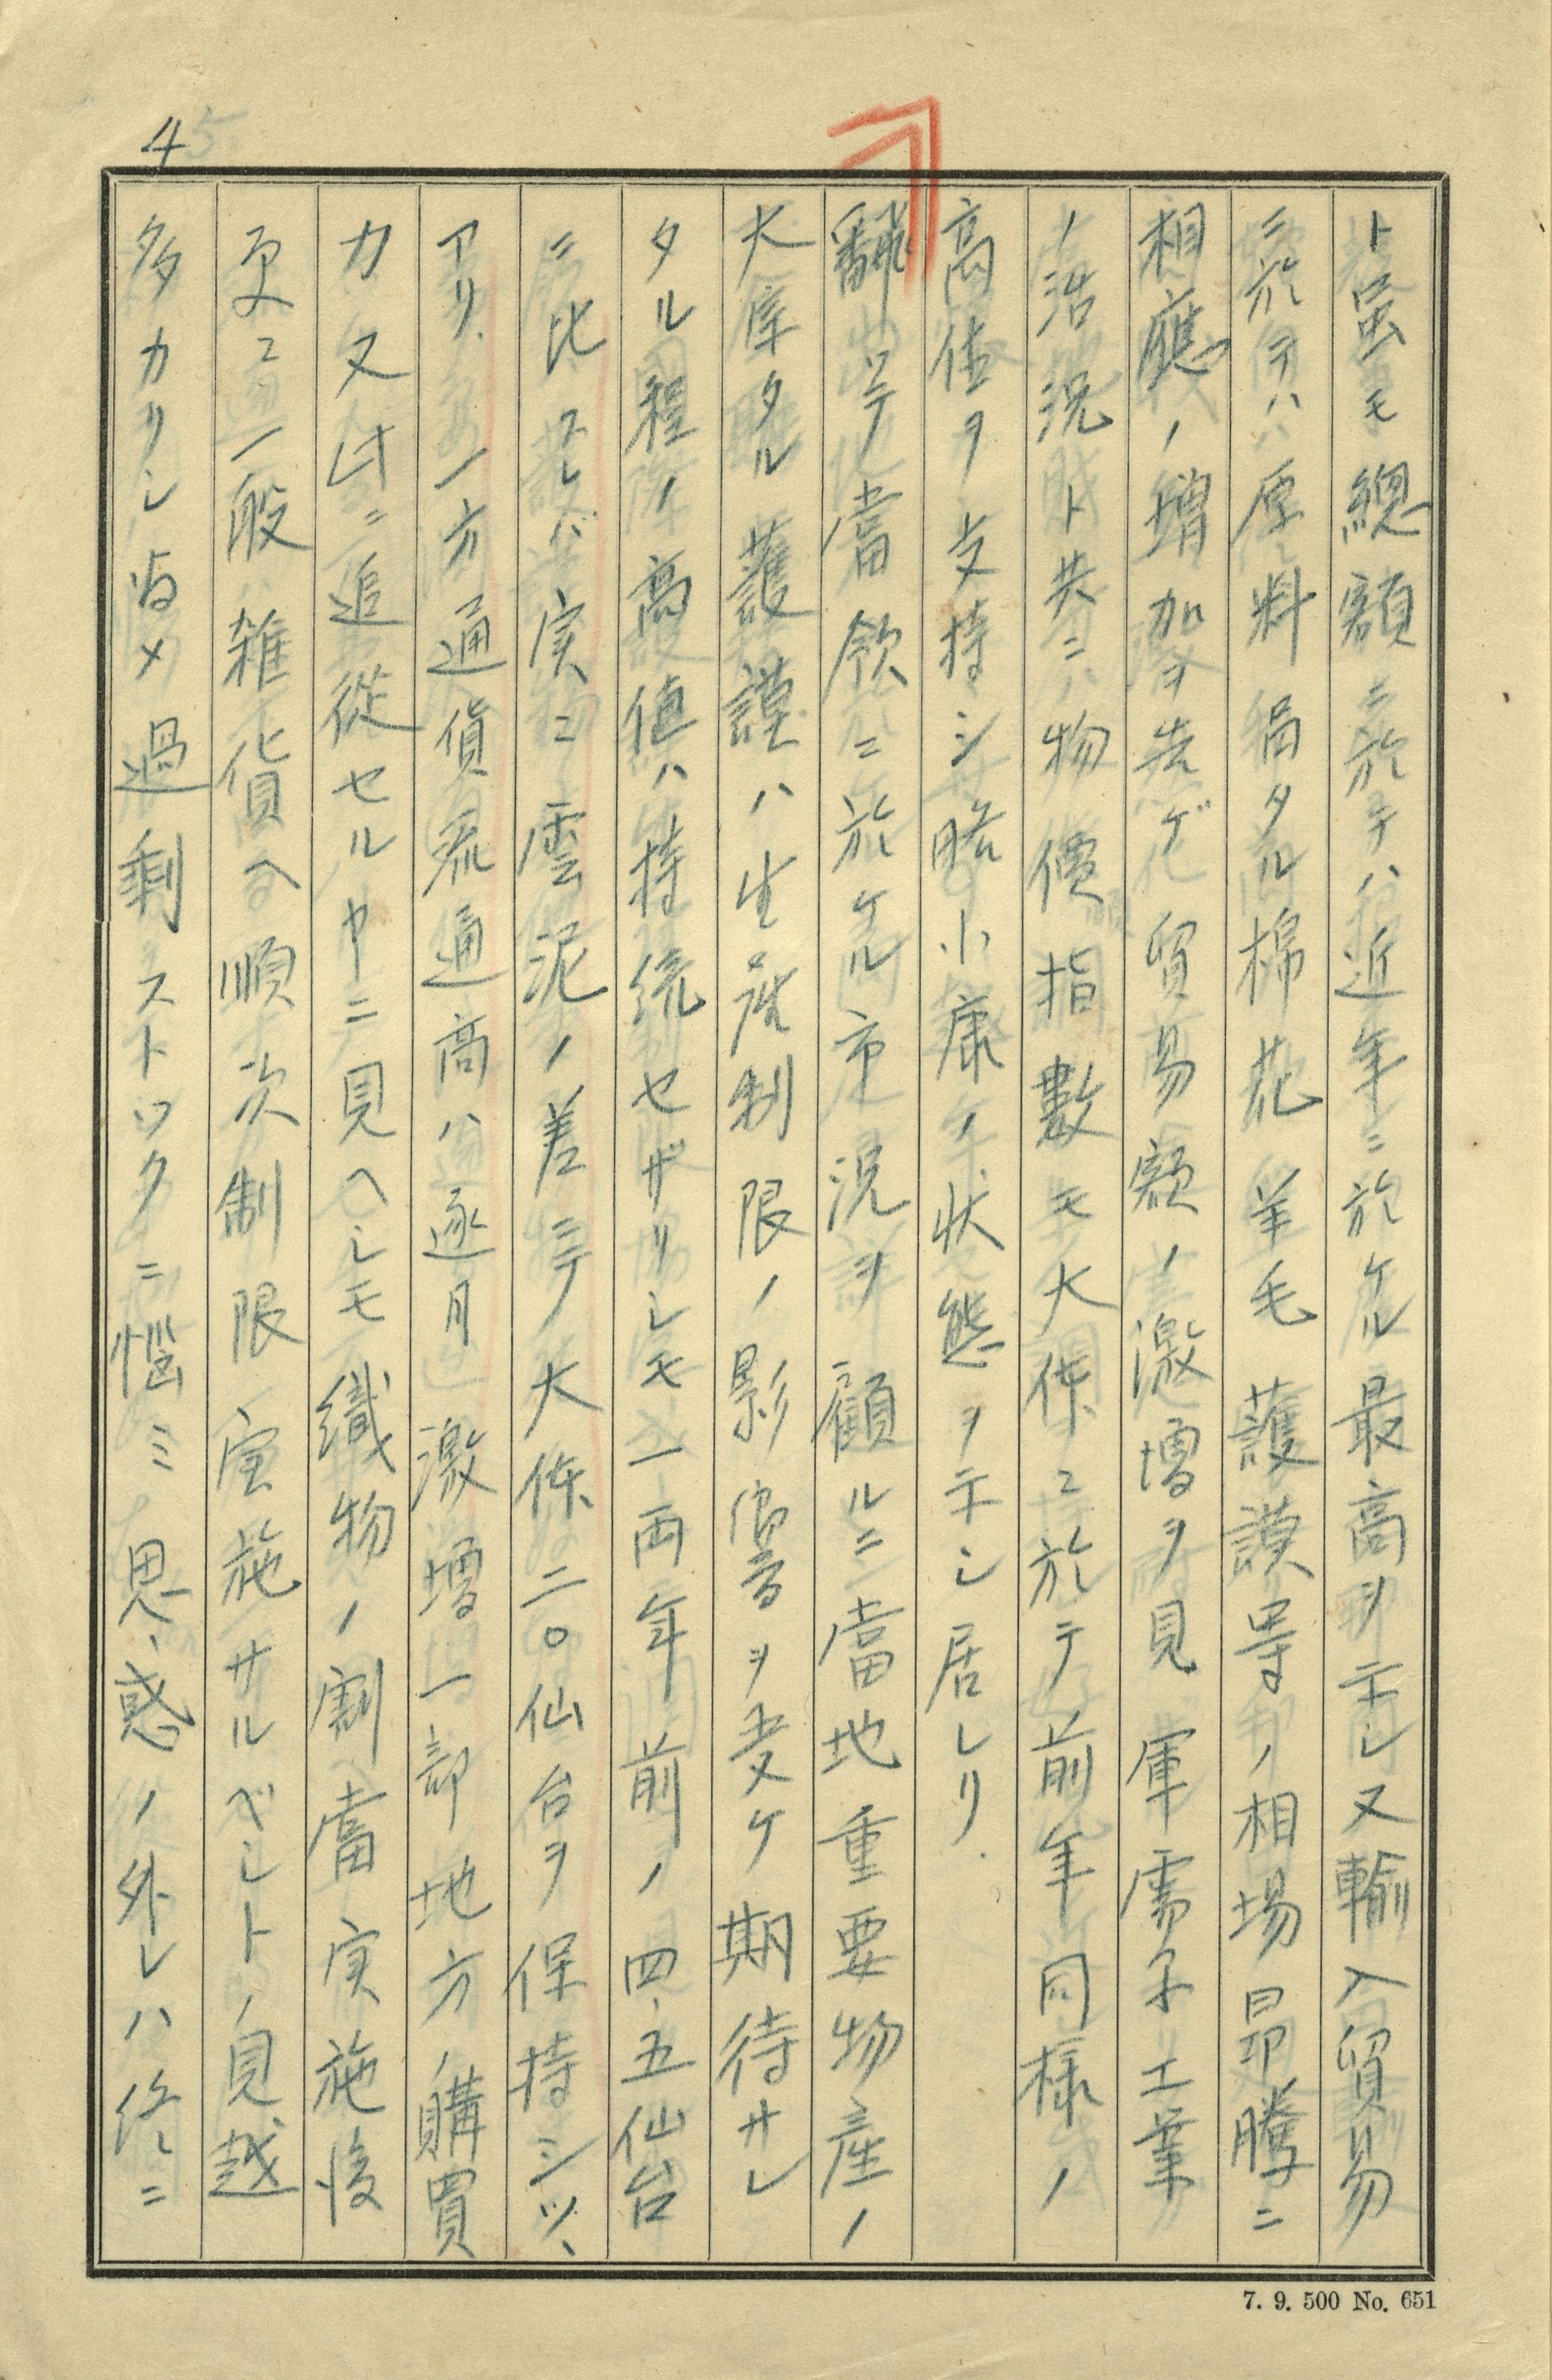 45
ト虽モ總額ニ於テハ近年ニ於ケル最高ヲ示シ又輸入貿易
ニ於テハ原料絹タル棉花羊毛護謨等ノ相場昂騰ニ
相應ノ増加ヲ告ゲ貿易額ノ激増ヲ見軍需工業
ノ浩況ト共ニ物價指數モ大体ニ於テ前年同様ノ
高値ヲ支持シ略小康ノ状態ヲ示シ居レリ.
飜ツテ當領ニ於ケル市況ヲ顧ルニ當地重要物産ノ
大宗タル護謨ハ生産制限ノ影響ヲ受ケ期待サレ
タル程ノ高値ハ持続セザリシモ一両年前ノ四、五仙台
ニ比スレバ実ニ雲泥ノ差ニテ大体二〇仙台ヲ保持シツヽ
アリ.一方通貨流通高ハ逐月激増一部地方ノ購買
力又之ニ追從セルヤニ見ヘシモ織物ノ割當実施後
更ニ一般雑貨ヘ順次制限実施サルベシトノ見越
多カリシ為メ過剰ストックニ悩ミ思惑ノ外レハ終ニ
7. 9. 500 No. 651